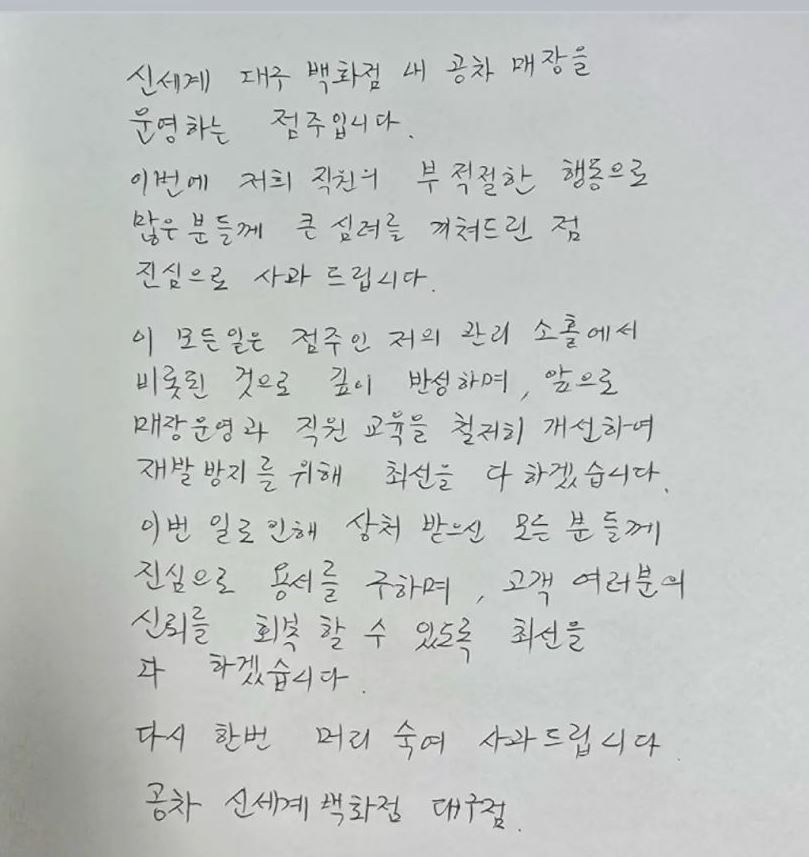 신세계 대구 백화점 내 공차 매장을
운영하는 점주입니다.
이번에 저희 직원의 부적절한 행동으로
많은 분들께 큰 심려를 끼쳐드린 점
진심으로 사과 드립니다.
이 모든일은 점주인 저의 관리 소홀에서
비롯된 것으로 깊이 반성하며, 앞으로
매장운영과 직원 교육을 철저히 개선하여
재발 방지를 위해 최선을 다 하겠습니다.
이번 일로 인해 상처 받으신 모든 분들께
진심으로 용서를 구하며, 고객 여러분의
신뢰를 회복 할 수 있도록 최선을
다 하겠습니다.
다시 한번 머리 숙여 사과드립니다.
공차 신세계백화점 대구점.